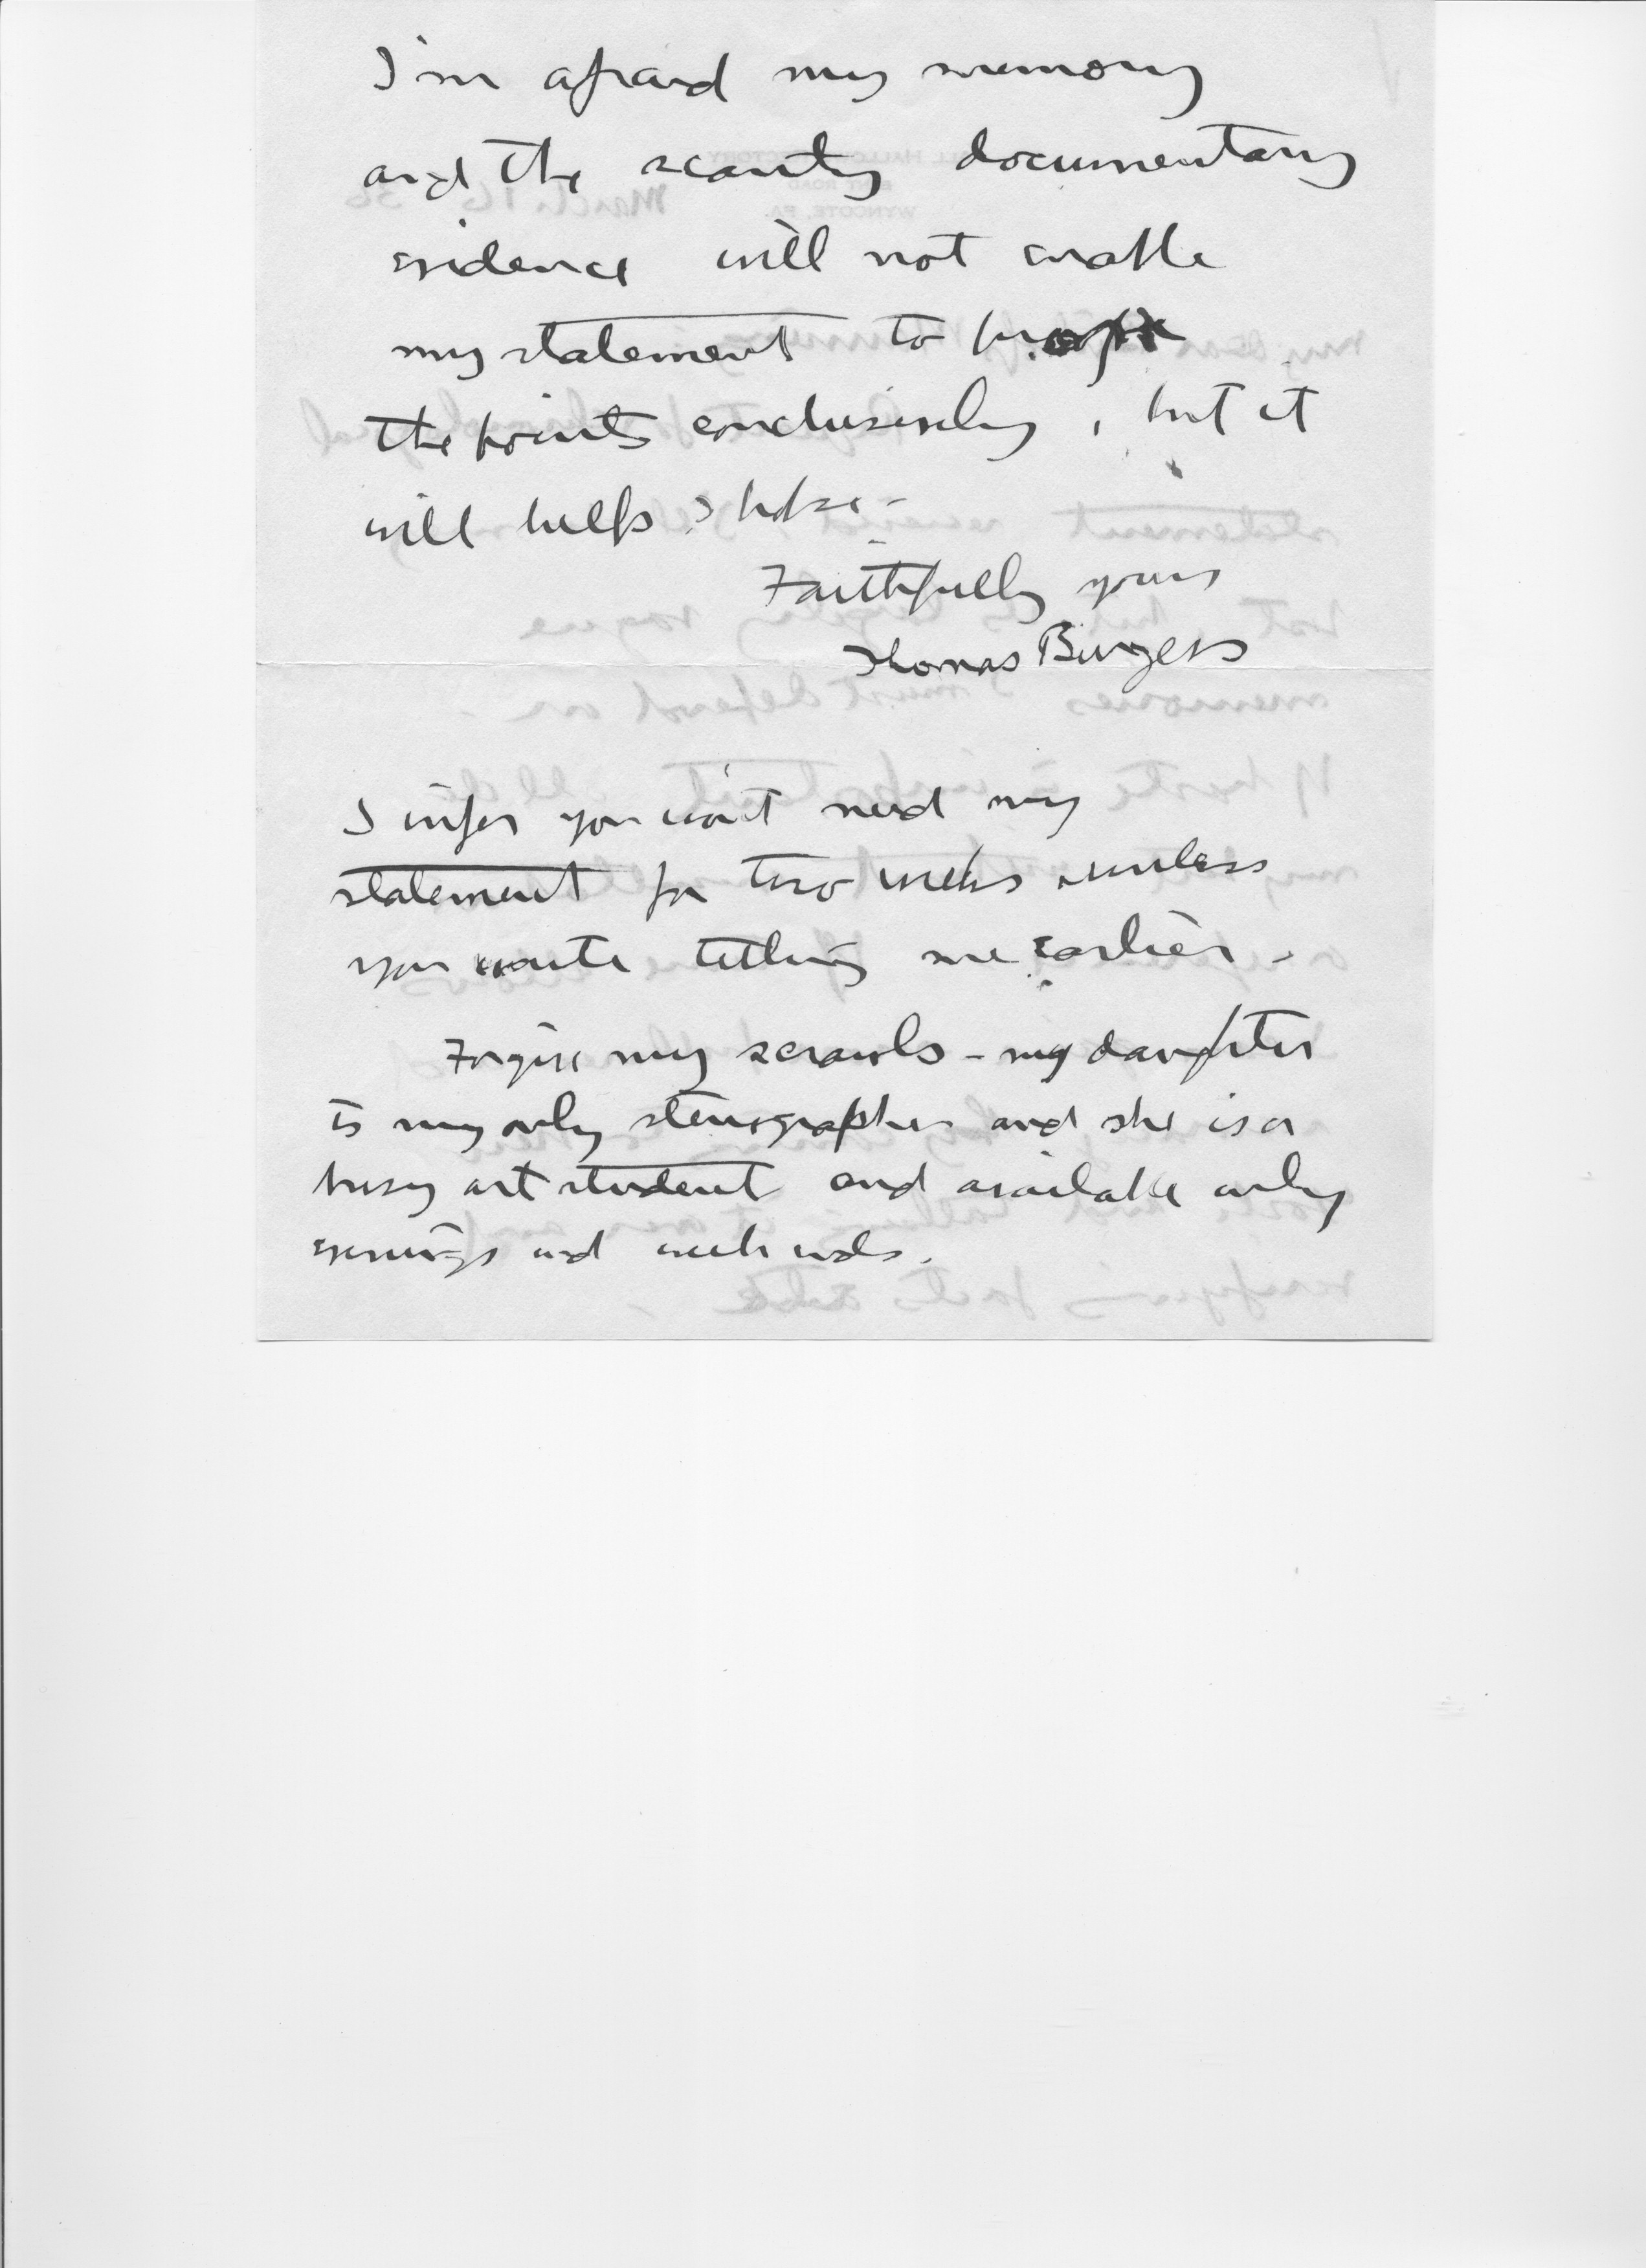 I'm afraid my memory
and the scanty documentary
evidence will not enable
my statement to
the points conclusively, but it
will help I hope -
Faithfully yours
Thomas Burgess
I infer you won't need my
statement for two weeks unless
you write telling me earlier -
Forgive my scrawls - my daughter
is my only stenographer and she is a
busy art student and available only
evenings and week ends.